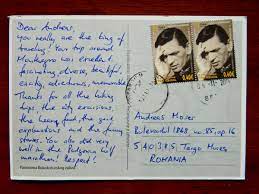 Dear Andreas,
You really are the king of
traveling! Your trip around
Montenegro was excellent
fascinating, diverse, beautiful,
exciting, adventurous, memorable
Thanks for all the hiking
trips, the city excursions
the heavy food, the good
explanations and the funny
stories. You also did very
well in the Podgorica half
marathon! Respect!
0.40€
0.40€
Andreas Moser
Bulevardul 1848, nr. 85, ap 16
540385 Targu Mures
ROMANIA